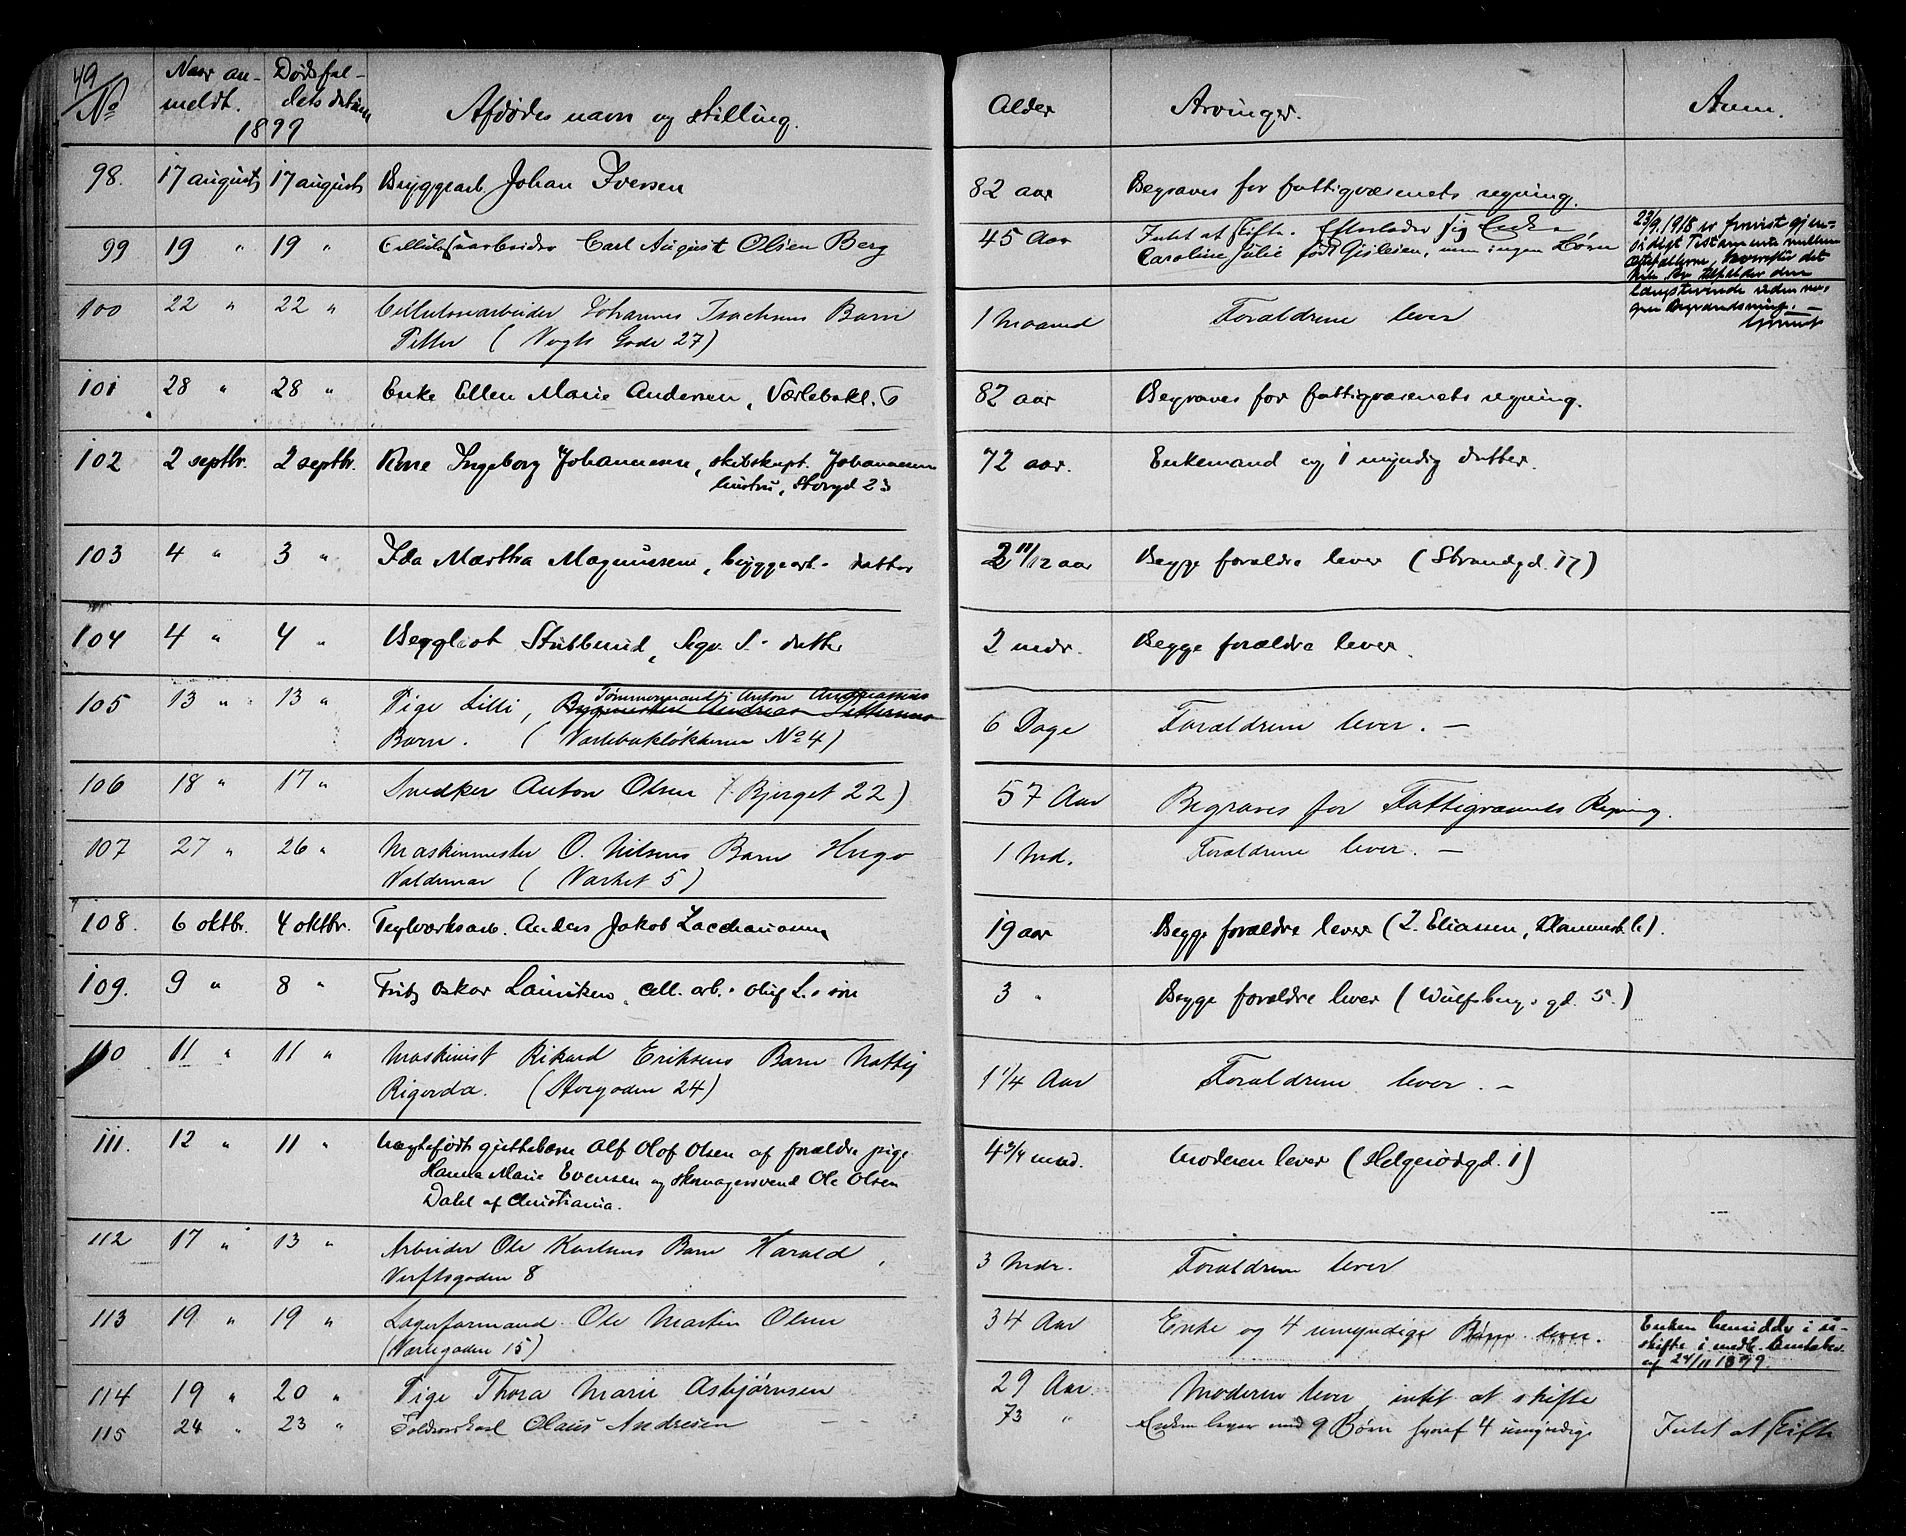 49
No Naar an- Dødsfal- Afdødes navn og stilling. Alder Arvinger. Anm.
meldt. dets datum
1899
98. 17 august 17 august Bryggearb. Johan Iversen 82 aar Begraves for fattigvæsenets regning.
99 19 " 19 " Cellulosearbeider Carl August Olsen Berg 45 Aar Intet at skifte. Efterlader sig Enke
Caroline Julie født Gislesen, men ingen Børn
23/9.1918 er fremvist gjen-
sidigt Testamente mellem
Ægtefællerne, hvorefter det
hele bo tilfalder den
længstlevende uden no-
gen Begrændsning. —
100 22 " 22 " Cellulosearbeider Johannes Isachsens Barn 1 Maaned Forældrene lever
Petter ( Vogts Gade 27)
101 28 " 28 " Enke Ellen Marie Andersen, Værlebakl. 6 82 aar Begraves for fattigvæsenets regning.
102 2 septbr. 2 septbr. Kone Ingeborg Johannesen, skibskapt. Johannesens 72 aar. Enkemand og 1 myndig datter.
hustru, Storgd 23
103 4 " 3 " Ida Martha Magnussen, bryggearb. datter 2 11/12 aar Begge forældre lever (Strandgd. 17)
104 4 " 4 " Bergliot Stubberud, Sigv. S. datter 2 mdr. Begge forældre lever.
105 13 " 13 " Pige Lilli, Tømmermand Anton Andreassens 6 Dage Forældrene lever. —
Bygmester Andreas Pettersens
Barn. ( Værlebakløkkerne No 4)
106 18 " 17 " Snedker Anton Olsen ( Bjerget 22 ) 57 Aar Begraves for Fattigvæsenets Regning.
107 27 " 26 " Maskinmester O. Nilsens Barn Hugo 1 Md. Forældrene lever. —
Valdemar ( Varket 5 )
108. 6 oktbr. 4 oktbr. Teglværksarb. Anders Jakob Zacchariasen 19 aar Begge forældre lever (Z. Eliassen,
109. 9 " 8 " Fritz Oskar Lauritzen, cell. arb. Oluf L.s søn 3 " Begge forældre lever (Wulfsbergs gd. 5.)
110 11 " 11 " Maskinist Rikard Eriksens Barn 1 1/4 Aar Forældrene lever. —
Rigorda. (Storgaden 24)
111. 12 " 11 " Uægtefødt guttebarn Alf Olof Olsen af forældre pige 4 3/4 mnd. Moderen lever (Helgerødgd. 1)
Hanna Marie Evensen og skomagersvend Ole Olsen
Dahl af Christiania.
112 17 " 13 " Arbeider Ole Karlsens Barn Harald, 3 Mdr. Forældrene lever
Verftsgaden 8
113 19 " 19 " Lagerformand Ole Martin Olsen 34 Aar Enke og 4 umyndige Børn lever.
(Varlegaden 15)
Enken hensidder i u-
skifte i medh.
af 24/11 1899.
114 19 " 20 " Pige Thora Marie Asbjørnsen 29 Aar Moderen lever intet at skifte
115 24 " 23 " Olaus Andresen — 73 " Enken lever med 9 Børn hvoraf 4 umyndige Intet at skifte